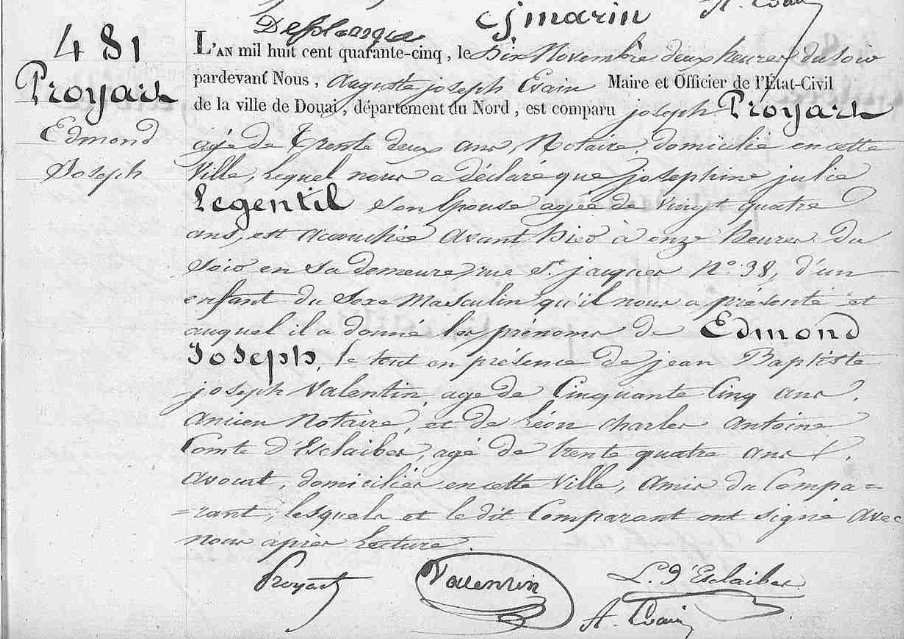 Desplanque
Cj marin
A. Evain
481
Proyart
Edmond
Joseph
L'AN mil huit cent quarante-cinq, le Dix Novembre deux heures du soir
pardevant Nous, Auguste joseph Evain Maire et Officier de l'État-Civil
de la ville de Douai, département du Nord, est comparu joseph Proyart
agé de Trente deux ans, Notaire, domicilié en cette
Ville, lequel nous a déclaré que joséphine julie
Legentil son épouse agée de vingt quatre
ans, est accouchée avant hier à onze heures du
soir en sa demeure rue St. jacques No. 38, d'un
enfant du sexe Masculin qu'il nous a présenté et
auquel il a donné les prénoms de Edmond
Joseph, le tout en présence de jean Baptiste
joseph Valentin, agé de Cinquante Cinq ans,
ancien Notaire, et de Léon charles Antoine
Comte d'Esclaibes, agé de trente quatre ans,
avocat, domiciliés en cette Ville, amis du Compa=
=rant, lesquels et le dit Comparant ont signé avec
nous après lecture.
Proyart
Valentin
L. d'Esclaibes
A. Evain